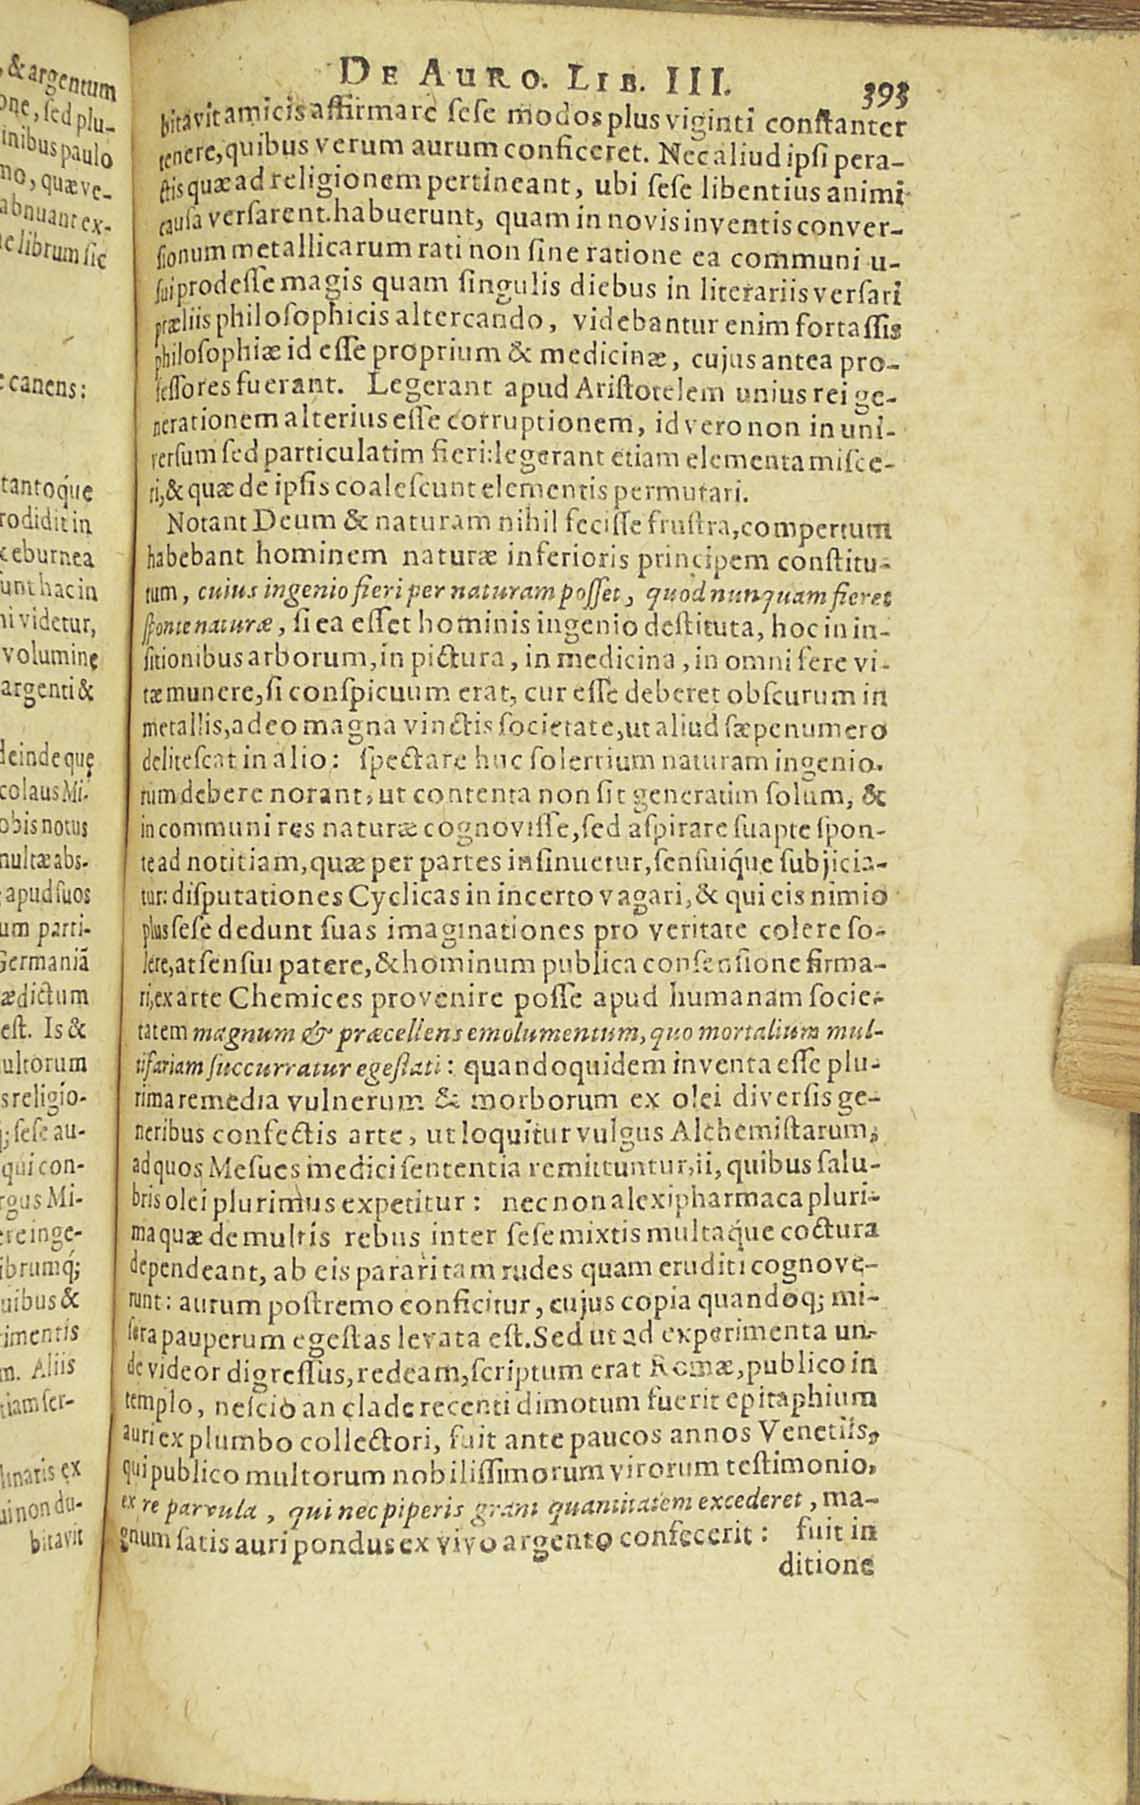 , & argentum
one, sed plu-
inibus paulo
mo, quæ ve-
abnuant ex-
e librum sic
e canens:
tantoq́ue
rodidit in
eburnea
unt hac in
ni videtur,
volumine
argenti &
deinde quę
colaus Mi-
obis notus
multæ abs-
apud suos
um parti-
Germaniã
ædictum
est. Is &
ultorum
s religio-
; sese au-
qui con-
rgus Mi-
ere inge-
ibrumq́;
uibus &
rimentis
m. Aliis
tiam ser-
linaris ex
ui non du-
bitavit
DE AURO. LIB. III. 393
bitavit amicis affirmare sese modos plus viginti constanter
tenere, quibus verum aurum conficeret. Nec aliud ipsi pera-
ctis quæ ad religionem pertineant, ubi sese libentius animi
causa versarent. habuerunt, quam in novis inventis conver-
sionum metallicarum rati non sine ratione ea communi u-
sui prodesse magis quam singulis diebus in literariis versari
præliis philosophicis altercando, videbantur enim fortassis
philosophiæ id esse proprium & medicinæ, cujus antea pro-
fessores fuerant. Legerant apud Aristotelem unius rei ge-
nerationem alterius esse corruptionem, id vero non in uni-
versum sed particulatim fieri: legerant etiam elementa misce-
ri, & quæ de ipsis coalescunt elementis permutari.
Notant Deum & naturam nihil fecisse frustra, compertum
habebant hominem naturæ inferioris principem constitu-
tum, cuius ingenio fieri per naturam posset, quod nunquam fieret
sponte naturæ, si ea esset hominis ingenio destituta, hoc in in-
sitionibus arborum, in pictura, in medicina, in omni fere vi-
tæ munere, si conspicuum erat, cur esse deberet obscurum in
metallis, adeo magna vinctis societate, ut aliud sæpenumero
delitescat in alio: spectare huc solertium naturam ingenio-
rum debere norant, ut contenta non sit generatim solum, &
in communi res naturæ cognovisse, sed aspirare suapte spon-
te ad notitiam, quæ per partes insinuetur, sensuiq́ue subjicia-
tur: disputationes Cyclicas in incerto vagari, & qui eis nimio
plus sese dedunt suas imaginationes pro veritate colere so-
lere, at sensui patere, & hominum publica consensione firma-
ri, ex arte Chemices provenire posse apud humanam socie-
tatem magnum & præcellens emolumentum, quo mortalium mul-
tifariam succurratur egestati: quandoquidem inventa esse plu-
rima remedia vulnerum & morborum ex olei diversis ge-
neribus confectis arte, ut loquitur vulgus Alchemistarum,
ad quos Mesues medici sententia remittuntur, ii, quibus salu-
bris olei plurimus expetitur: necnon alexipharmaca pluri-
ma quæ de multis rebus inter sese mixtis multaq́ue coctura
dependeant, ab eis parari tam rudes quam eruditi cognove-
runt: aurum postremo conficitur, cujus copia quandoq; mi-
sera pauperum egestas levata est. Sed ut ad experimenta un-
de videor digressus, redeam, scriptum erat Romæ, publico in
templo, nescio an clade recenti dimotum fuerit epitaphium
auri ex plumbo collectori, fuit ante paucos annos Venetiis,
qui publico multorum nobilissimorum virorum testimonio,
ex re parvula, qui nec piperis grani quantitatem excederet, ma-
gnum satis auri pondus ex vivo argento confecerit: fuit in
ditione